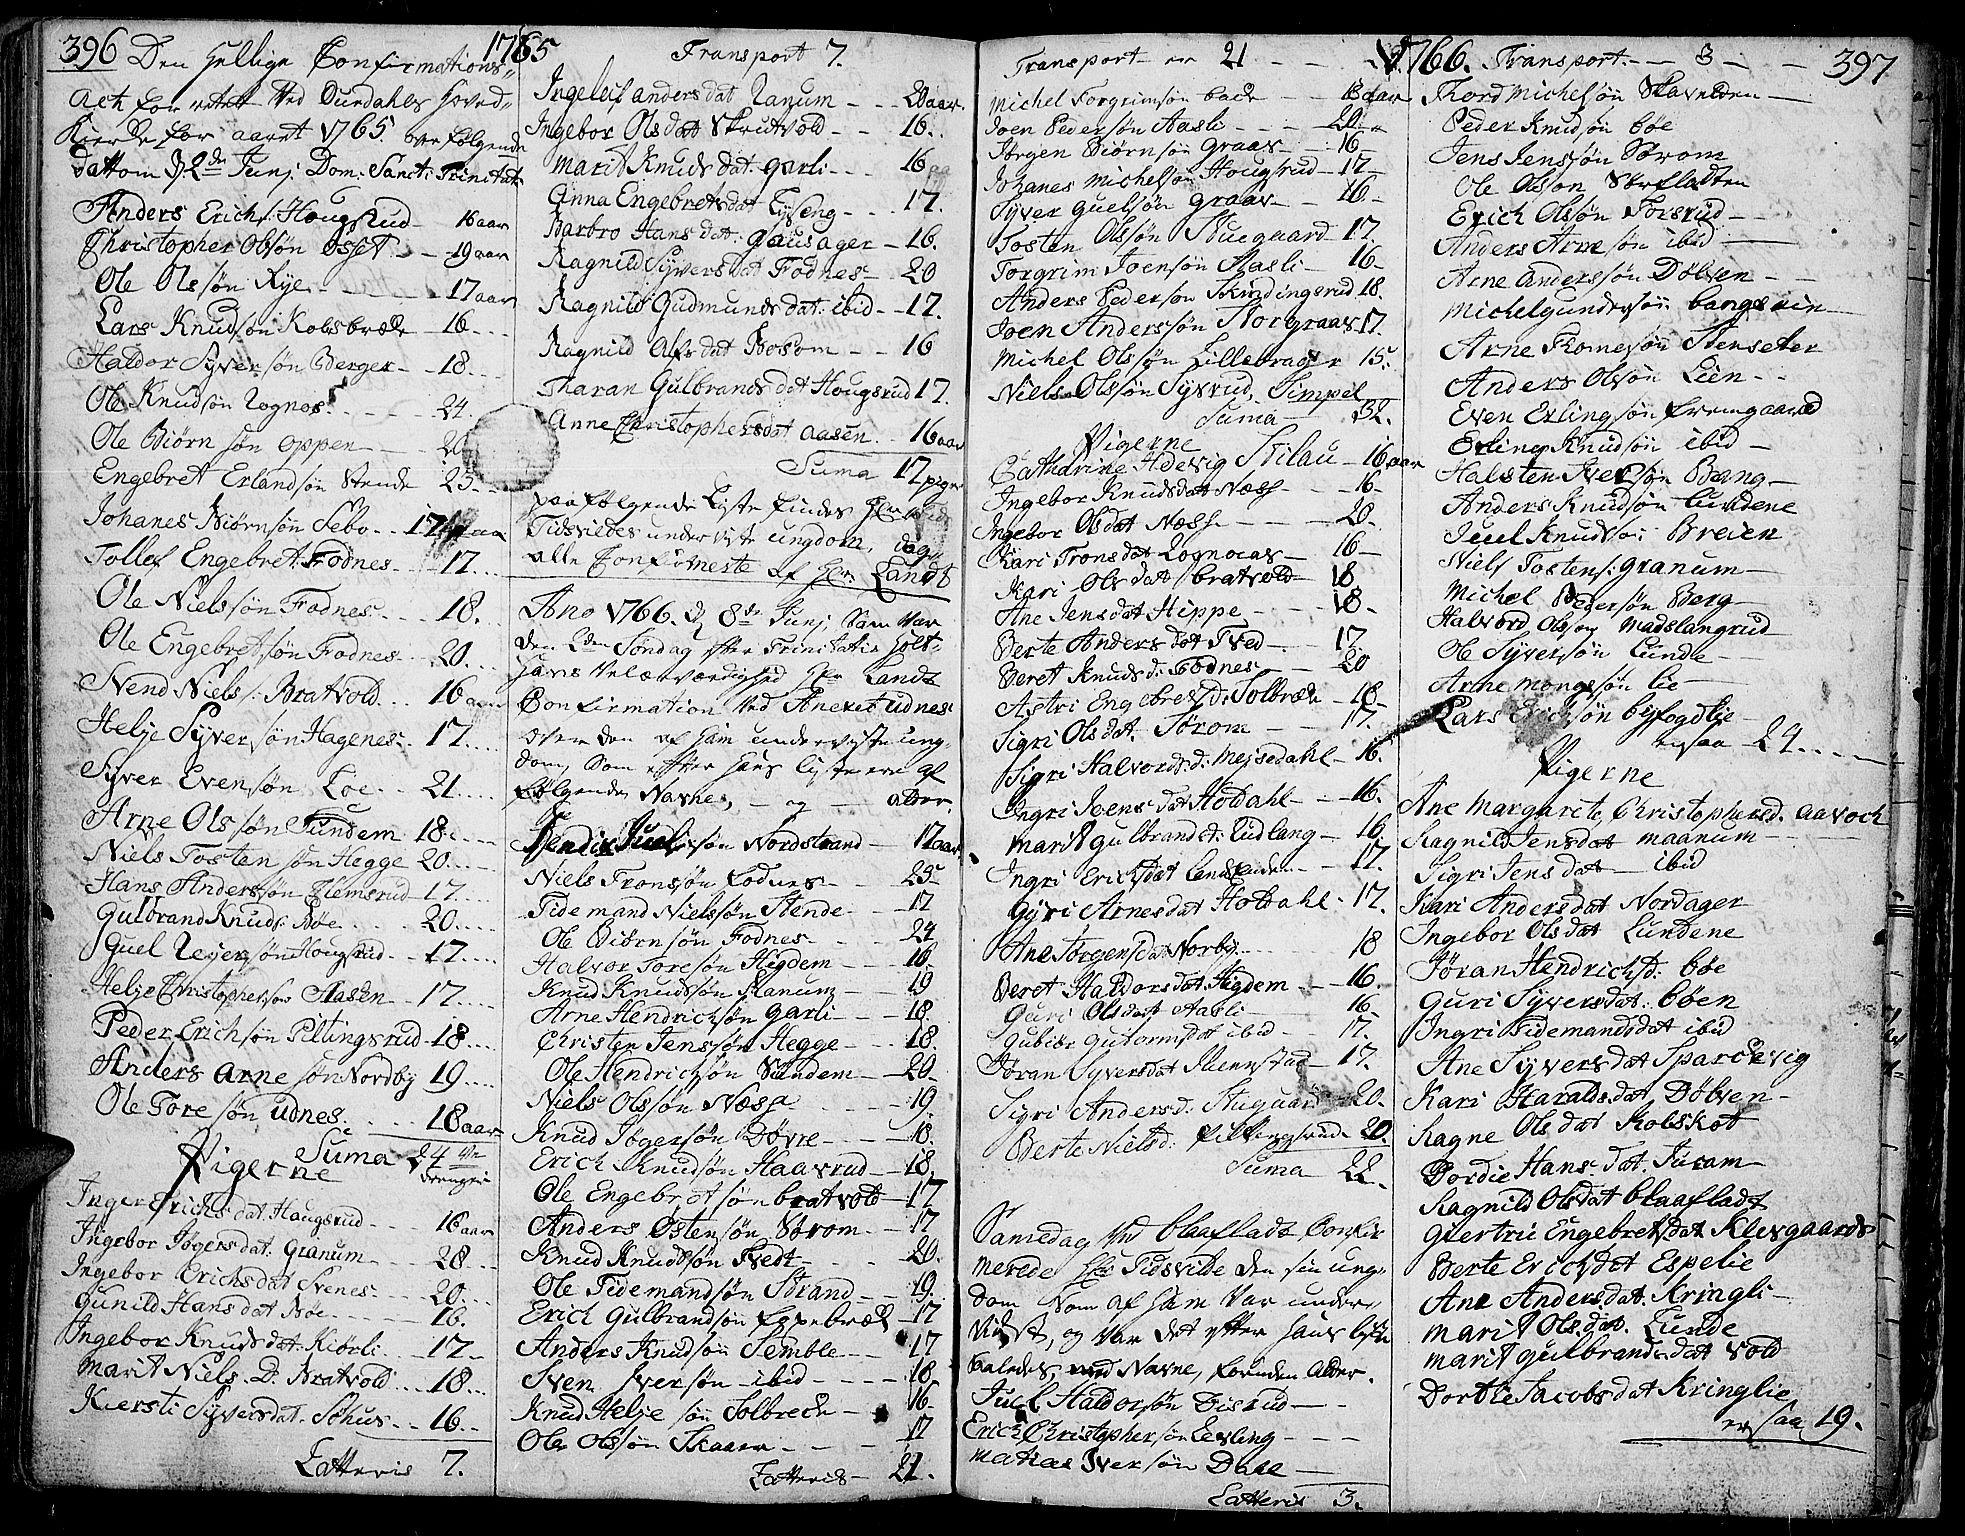 396
1765
Den Hellige Confirmations"
act forrettet Ved Durdahls hoved"
Kierke for aaret 1765. over følgende
dattom d 2de Junj: Dom: Sanct: Trinitat:
Anders Erichs: Hougsrud 16 aar
Christopher Olsøn Osset 19 aar
Ole Olssøn Rye 17 aar
Lars Knudsøn Kolsbræk 16
Haldor Syversøn Berger 18
Ole Knudsøn Rognas 24
Ole Biørnsøn Oppen
Engebret Erlandsøn Stende 25
Johanes Biørnsøn Sebo 17 aar
Tollef Engebret: Fodnes 17
Ole Nielssøn Fodnes 18
Ole Engebretsøn Fodnes 20
Svend Niels: Bratvold 16 aar
Helje Syversøn Hagenes 17
Syver Evensøn Løe 21
Arne Olssøn Sundem 18
Niels Tostensøn Hegge 20
Hans Anderssøn Klemsrud 17
Gulbrand Knuds: Bøe 20
Juel Reijersøn Hougsrud 17
Helje Christophersøn Aasen 17
Peder Erichsøn Piltingsrud 18
Anders Arnesøn Nordby 19
Ole Toresøn Udnes 18 aar
Suma 24
Pigerne
Inger Erichsdat: Haugsrud 16 aar
Ingebor Jøgersdat: Granum 28
Ingebor Erichsdat Svenes 20
Gunild Hansdat Bøe 16
Ingebor Knudsdat: Kiørli 17
Marit Niels. D. Bratvold 18
Kiersti Syversdat. Søhus 16
Latteris 7.
Transport 7.
Ingeleif andersdat Ranum 20 aar
Ingebor Olsdat Skrutvold 16
Marit Knudsdat: Garli 16
Anna Engebretsdat Lyseng 17.
Barbro Hansdat: Gausager 16.
Ragnild Syversdat Fodnes 20
Ragnild Gudmundsdat: ibid 17.
Ragnild Alfsdat Bosom 16
Maran Gulbrandsdat Hougsrud 17.
Anne Christophersdat Aasen 16 aar
Suma 17 piger
paa følgende Lyste findes Her
Tidsvildes underviste ungdom, dog
alle Confirmeste af Her: Landt
Ano 1766. d 8de Junj som var
den 2den Søndag efter Trinitatis holt
Hans Velærværdighed Hr: Landt
Confirmation Ved Anexet Udnes
over den af ham underviste ung"
dom, som effter hans liste ere af
følgende Navne, og alder.
Juelsøn Nordstrand 17 aar
Niels Tronsøn Fodnes 25
Tidemand Nielssøn Stende 17
Ole Biørnsøn Fodnes 24
Halvor Toresøn Higdem 18
Knud Knudsøn Ranum 19
Arne Hendrichsøn Garli 18.
Christen Jenssøn Hegge 18.
Ole Hendrichsøn Sundem 20.
Niels Olssøn Næss 19.
Knud Jøgersøn Døvre 18.
Erich Knudsøn Haavrud 18.
Ole Engebretsøn bratvold 17
Anders Østensøn Sørom 17
Knud Knudsøn Tvedt 20.
Ole Tidemandsøn Strand 19.
Erich Gulbrandsøn Eggebræk 17
Anders Knudsøn Semble 17
Sven Iversøn ibid 18.
Knud Heljesøn Solbreck 16.
Ole Olssøn Skaar 17
Latteris 21.
Transport er 21
Michel Torgrimsøn bade 18 aar
Joen Pedersøn Aasli 20.
Jørgen Biørnsøn Graav 16
Johanes Michelsøn Hougsrud 17
Syver Guelsøn Graav 16
Tosten Olssøn Stuegaard 17
Torgrim Joensøn Aasli 16
Anders Pedersøn Skindingsrud 18.
Joen Anderssøn Storgraav 17.
Michel Olssøn Lillebrager 15.
Niels Olssøn Syvrud, Simpel
Suma 32.
Pigerne
Catharine Hdevig Stilau 16 aar
Ingebor Knudsdat Næss 16
Ingebor Olsdat Næss 20.
Kari Tronsdat Rognaas 16
Kari Olsdat bratvold 18
Ane Jensdat Hippe 18
Berte Andersdat Tved 17.
Beret Knuds d: Fodnes 20
Astri Engebretsd: Solbræk 18
Sigri Olsdat Sørom 17.
Sigri Halvords. d: Mejsedahl 16.
Ingri Joensdat Høldahl 16.
Marit Gulbrandsd: Lidlang 16
Ingri Erichsdat 17.
Gyri Arnesdat Høldahl 17.
Ane Jørgensdat Norby 18
Beret Haldorsdat Higdem 16.
Guri Olsdat Aasli 16.
Gubiør Gutormsdat ibid 17.
Jøran Syversdat Mennstad 17.
Sigri Andersd: Stugaard 20.
Berte Nielsd: Piltingsrud 20.
Suma 22.
Samedag Ved Blaaflads Confir
merede Her Tidsvilde den sin ung"
dom som af ham var under"
Viist, og var det effter hans lyste
saaledes, med Navne, foruden Alder.
Juel Haldorsøn Disrud
Erich Christophersøn Levling
Matias Iversøn Dahl
Latteris 3.
1766.
397
Transport 3
Thord Michelsøn Skavelden
Peder Knudsøn bøe
Jens Jensøn Sørom
Ole Olsøn Storfladten
Erich Olssøn Forsrud
Anders Arnesøn ibid
Arne Anderssøn Døbsen
Michel Gundersøn bangerin
Arne Thomesøn Stensetter
Anders Olssøn Lien
Even Erlingsøn Fremgaard
Erling Knudsøn ibid
Halsten Iversøn Bang
Anders Knudsøn Lundene
Juel Knudsøn Breien
Niels Tostens: Granum
Michel Pedersøn Berg
Halvord Olsøn Madslangrud
Ole Syversøn Lunde
Arne Mongssøn lie
Lars Erichsøn byfogdlie
ersaa 24
Pigerne
Ane Margarete Christophersd. Aavoch
Ragnild Jensdat Maanum
Sigri Jensdat ibid
Kari Andersdat Nordager
Ingebor Olsdat Lundene
Jøran Hendrichsd: bøe
Guri Syversdat: bøen
Ingri Tidemandsdat ibid
Ane Syversdat Sparrevig
Kari Haraldsdat Døbsen
Ragne Olsdat Kolskot
Dordie Hansdat. Juram
Ragnild Olsdat Blaafladt
Giertrü Engebretsdat Klevgaards
Berte Erichsdat Espelie
Ane Andersdat: Kringli
Marit Olsdat. Lunde
Marit Gulbrandsdat Vold
Dortte Jacobsdat Kringlie
ersaa 19.